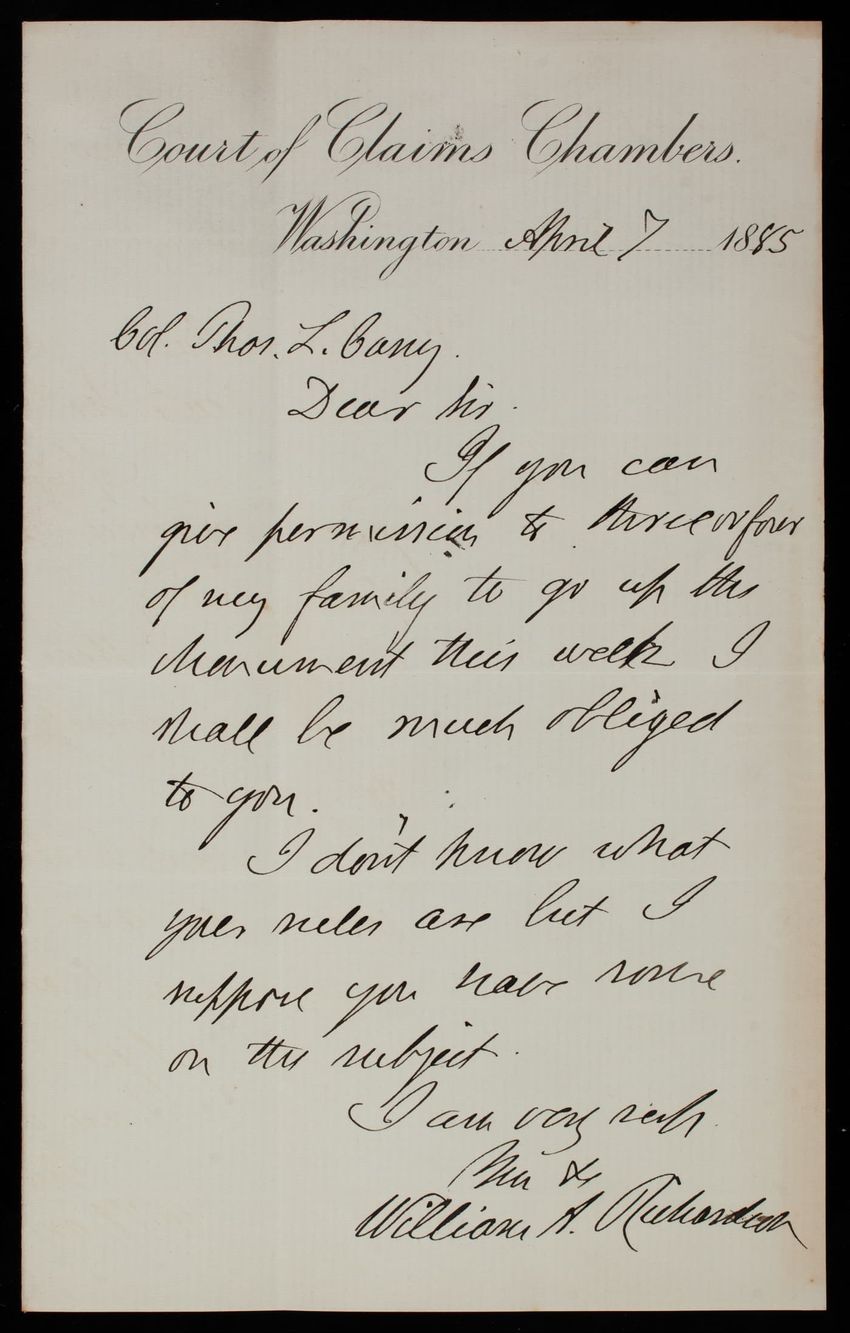 Court of Claims Chambers.
Washington April 7 1885
Col. Thos. L. Casey.
Dear Sir.
If you can
give permission to three or four
of my family to go up the
Monument this week I
shall be much obliged
to you.
I don't know what
your rules are but I
suppose you have some
on the subject.
I am very resp.
&c
William A. Richardson